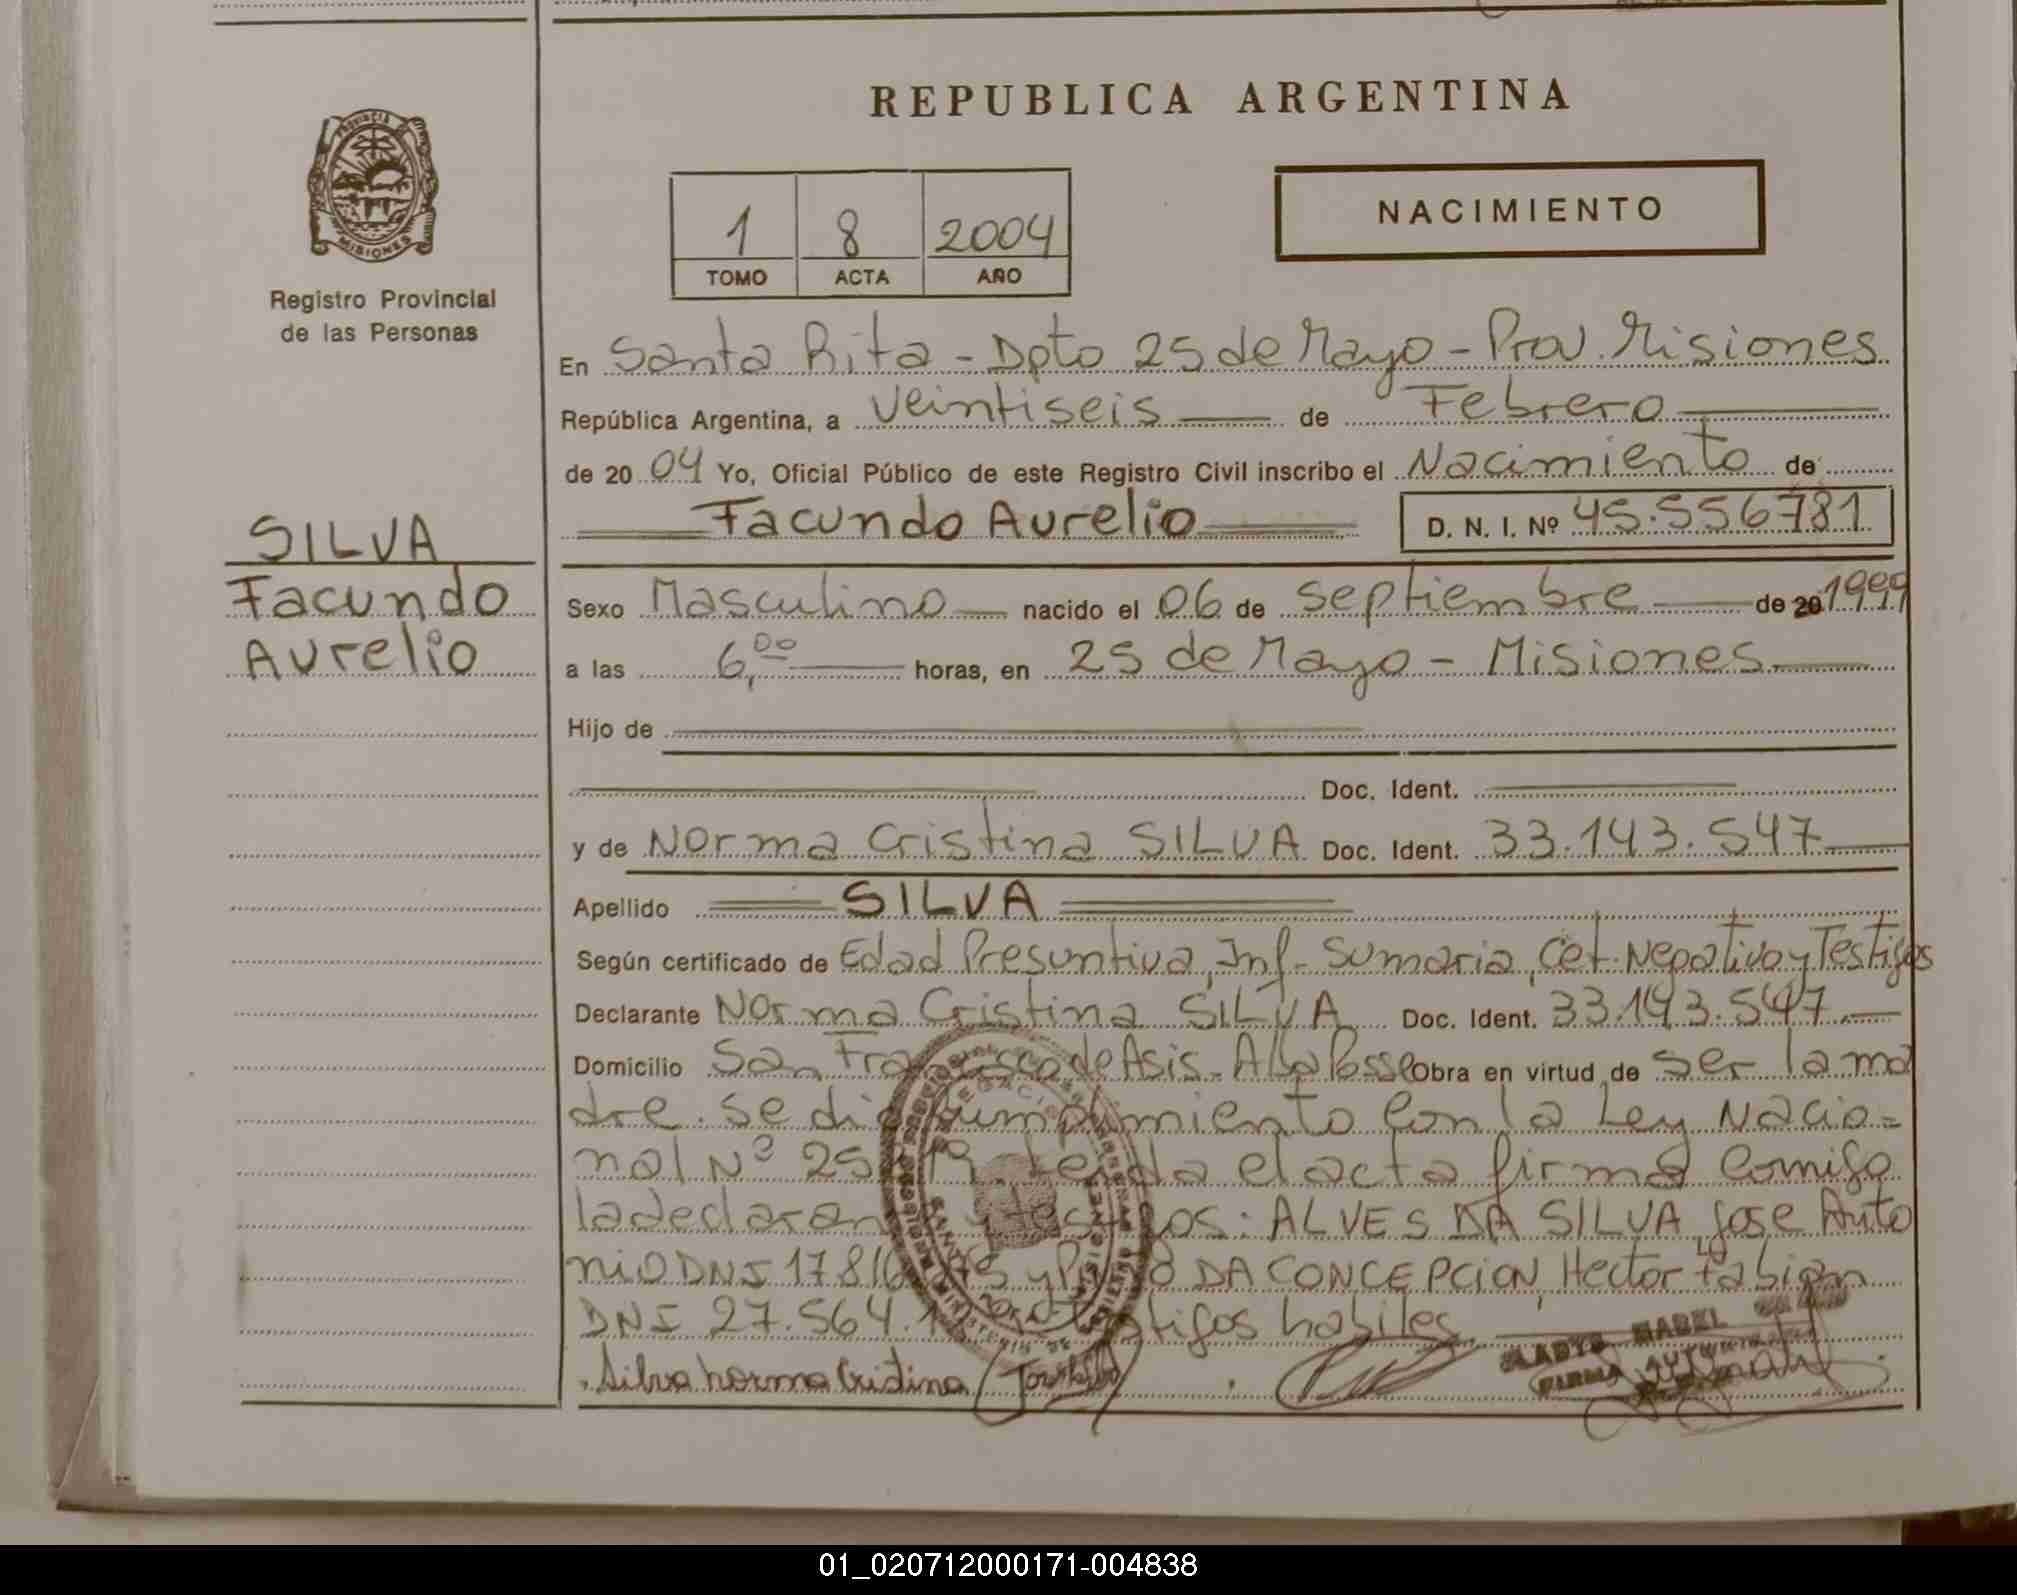 REPUBLICA ARGENTINA
PROVINCIA DE
MISIONES
Registro Provincial
de las Personas
1 8 2004
TOMO ACTA AÑO
NACIMIENTO
En Santa Rita - Dpto 25 de Mayo - Prov. Misiones
República Argentina, a Veintiseis de Febrero
de 20 04 Yo, Oficial Público de este Registro Civil inscribo el Nacimiento de
Facundo Aurelio D. N. I. Nº 45.556781
SILVA
Facundo
Aurelio
Sexo Masculino nacido el 06 de Septiembre de 20 1999
a las 6,00 horas, en 25 de Mayo - Misiones
Hijo de
Doc. Ident.
y de Norma Cristina SILVA Doc. Ident. 33.143.547
Apellido SILVA
Según certificado de Edad Presuntiva, Inf. Sumaria, Cet. Negativo y Testigos
Declarante Norma Cristina SILVA Doc. Ident. 33.143.547
Domicilio San Francisco de Asis - Alba Posse Obra en virtud de ser la ma
dre. Se dio cumplimiento con la Ley Nacio=
nal Nº 25 Leida el acta firma comigo
la declarante y testigos: ALVES DA SILVA, Jose Anto
nio DNI 178 y DA CONCEPCION, Hector Fabian
DNI 27.564. testigos habiles
Silva norma Cristina
GLADYS MABEL
FIRMA
01_020712000171-004838